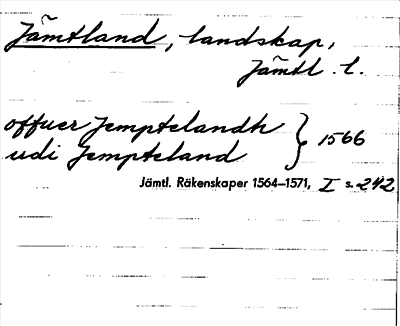 Jämtland, landskap,
Jämtl. l.
offuer Jemptelandh } 1566
udi Jempteland
Jämtl. Räkenskaper 1564–1571, I s. 242